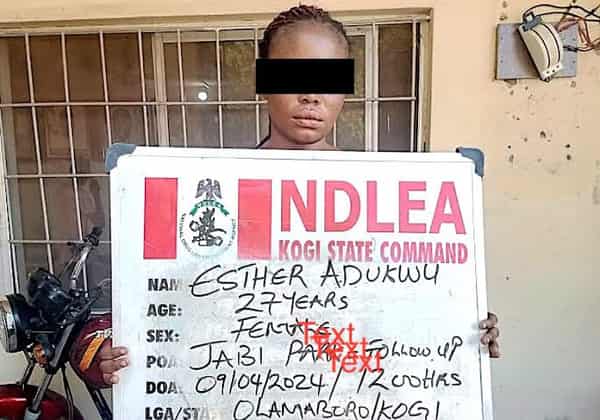 NDLEA
KOGI STATE COMMAND
NAM ESTHER ADUKWU
AGE: 27 YEARS
SEX: FEMALE
Text
Text
Text
POA: JABI PARK FOLLOW UP
DOA: 09/04/2024/1200HRS
LGA/STA OLAMABORO/KOGI